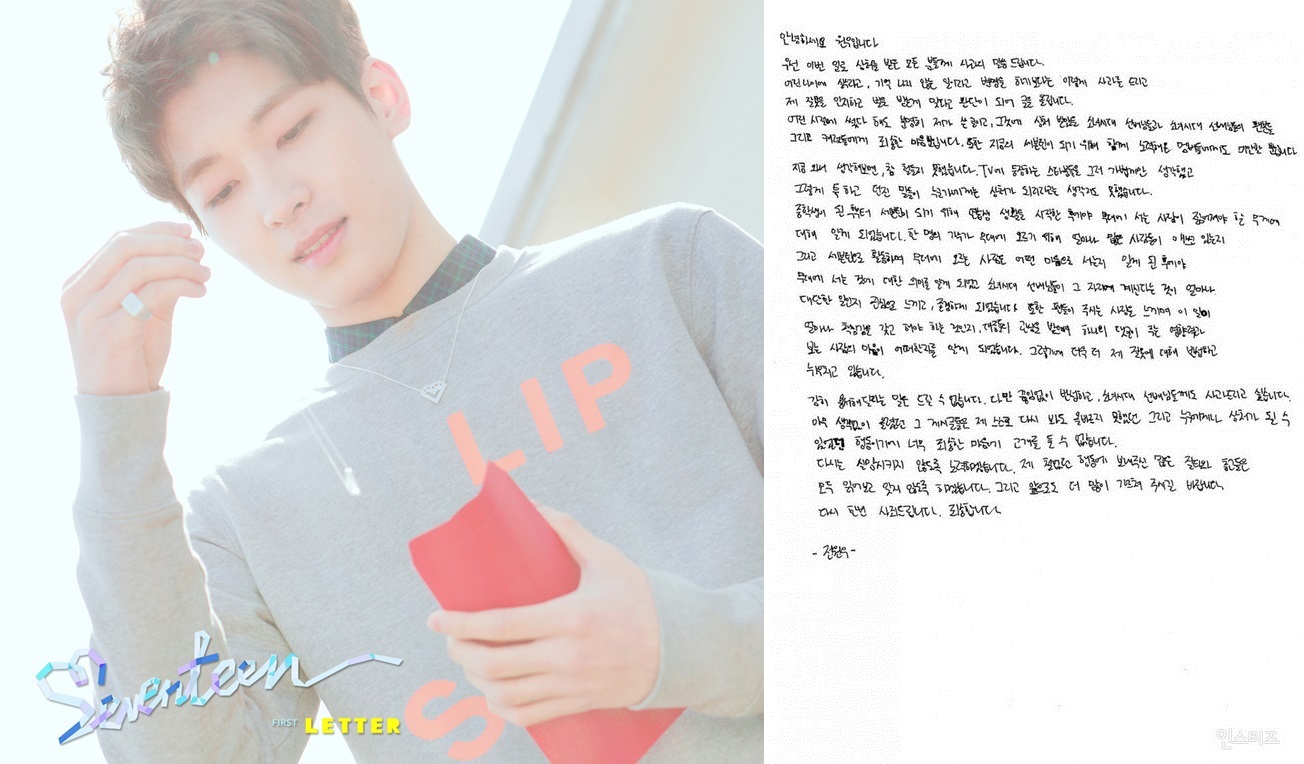 LIP
S
Seventeen
FIRST LETTER
안녕하세요 원우입니다
우선 이번 일로 상처를 받은 모든 분들께 사과의 말씀 드립니다.
어린나이에 생각하고, 기억 나지 않는 일이라고 변명을 하기보다는 이렇게 사과를 드리고
제 잘못을 인지하고 벌로 받는게 맞다고 판단이 되어 글을 올립니다.
어린 시절에 썼다 해도 분명히 제가 쓴 글이고, 그것에 상처 받았을 소녀시대 선배님들과 소녀시대 선배님들의 팬분들
그리고 캐럿들에게 죄송한 마음뿐입니다. 또한 지금의 세븐틴이 되기 위해 함께 노력해온 멤버들에게도 미안할 뿐입니다
지금 와서 생각해보면, 참 철들지 못했습니다. TV에 등장하는 스타분들을 그저 가볍게만 생각했고
그렇게 툭 하고 던진 말들이 누군가에게는 상처가 되리라고는 생각지도 못했습니다.
중학생이 된 후부터 세븐틴이 되기 위해 연습생 생활을 시작한 후에야 무대에 서는 사람이 짊어져야 할 무게에
대해 알게 되었습니다. 한 명의 가수가 무대에 오르기 위해 얼마나 많은 사람들이 애쓰고 있는지
그리고 세븐틴으로 활동하며 무대에 오르는 사람은 어떤 마음으로 서는지 알게 된 후에야
무대에 서는 것에 대한 의미를 알게 되었고 소녀시대 선배님들이 그 자리에 계신다는 것이 얼마나
대단한 일인지 진심으로 느끼고, 존경하게 되었습니다. 또한 팬들이 주시는 사랑을 느끼며 이 일이
얼마나 책임감을 갖고 해야 하는 것인지, 대중들의 관심을 받으며 하나의 댓글이 주는 영향력과
보는 사람의 마음이 어떠한지를 알게 되었습니다. 그렇기에 더욱 더 제 잘못에 대해 반성하고
뉘우치고 있습니다.
감히 용서해달라는 말은 드릴 수 없습니다. 다만 끊임없이 반성하고, 소녀시대 선배님들께도 사과드리고 싶습니다.
아무 생각없이 올렸던 그 게시글들은 제 스스로 다시 봐도 올바르지 못했던 그리고 누구에게나 상처가 될 수
있었던 행동이기에 너무 죄송한 마음에 고개를 들 수 없습니다.
다시는 실망시키지 않도록 노력하겠습니다. 제 철없던 행동에 보내주신 많은 질타와 충고들은
모두 읽어보고 잊지 않도록 하겠습니다. 그리고 앞으로도 더 많이 가르쳐 주시길 바랍니다.
다시 한번 사죄드립니다. 죄송합니다.
- 전원우 -
인스티즈